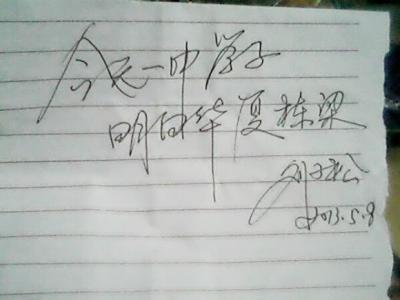 今天一中学子
明日华夏栋梁
2013.5.8